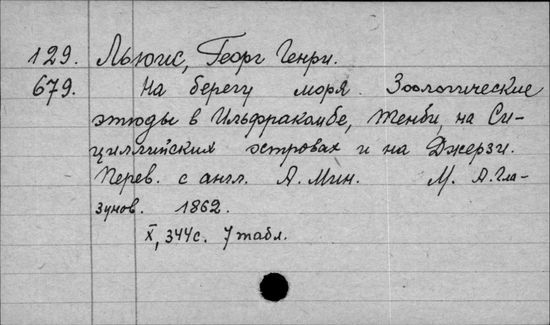 129. Льюис, Георг Генри.
679. На берегу моря. Зоологические
этюды в Ильфракомбе, Тенби, на Си-
циллийских островах и на Джерзи.
Перев. с англ. А. Мин. М. А. Гла-
зунов. 1862.
X, 344с. 7 табл.